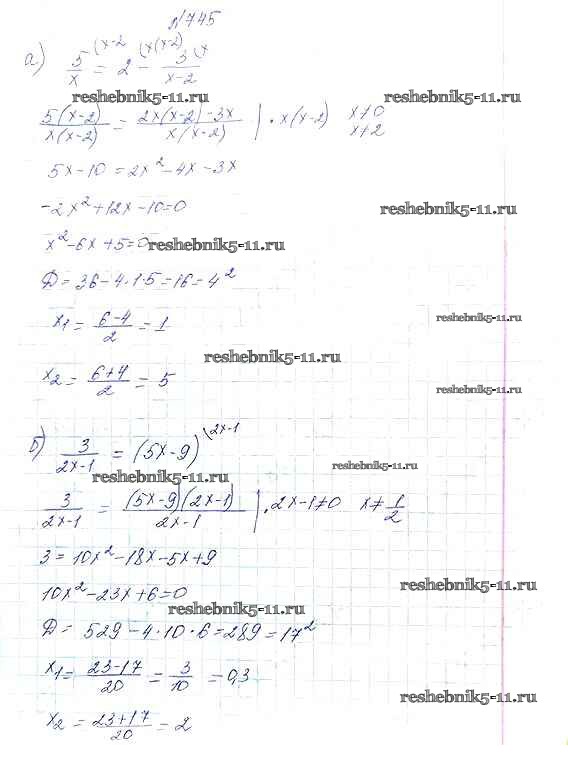 №745
а) 5/x (x-2 = 2 (x(x-2) - 3/(x-2) (x
reshebnik5-11.ru reshebnik5-11.ru
5(x-2)/x(x-2) = 2x(x-2)-3x/x(x-2) | · x(x-2) x≠0
x≠2
5x-10 = 2x²-4x-3x
-2x²+12x-10=0 reshebnik5-11.ru
x²-6x+5=0 reshebnik5-11.ru
Д=36-4·1·5=16=4²
x₁= 6-4/2 =1 reshebnik5-11.ru
reshebnik5-11.ru
x₂= 6+4/2 = 5 reshebnik5-11.ru
б) 3/2x-1 = (5x-9) (2x-1
reshebnik5-11.ru reshebnik5-11.ru
3/2x-1 = (5x-9)(2x-1)/2x-1 | · 2x-1≠0 x≠1/2
3=10x²-18x-5x+9
10x²-23x+6=0 reshebnik5-11.ru
reshebnik5-11.ru
Д= 529-4·10·6=289=17²
x₁= 23-17/20 = 3/10 =0,3
reshebnik5-11.ru
x₂= 23+17/20 = 2